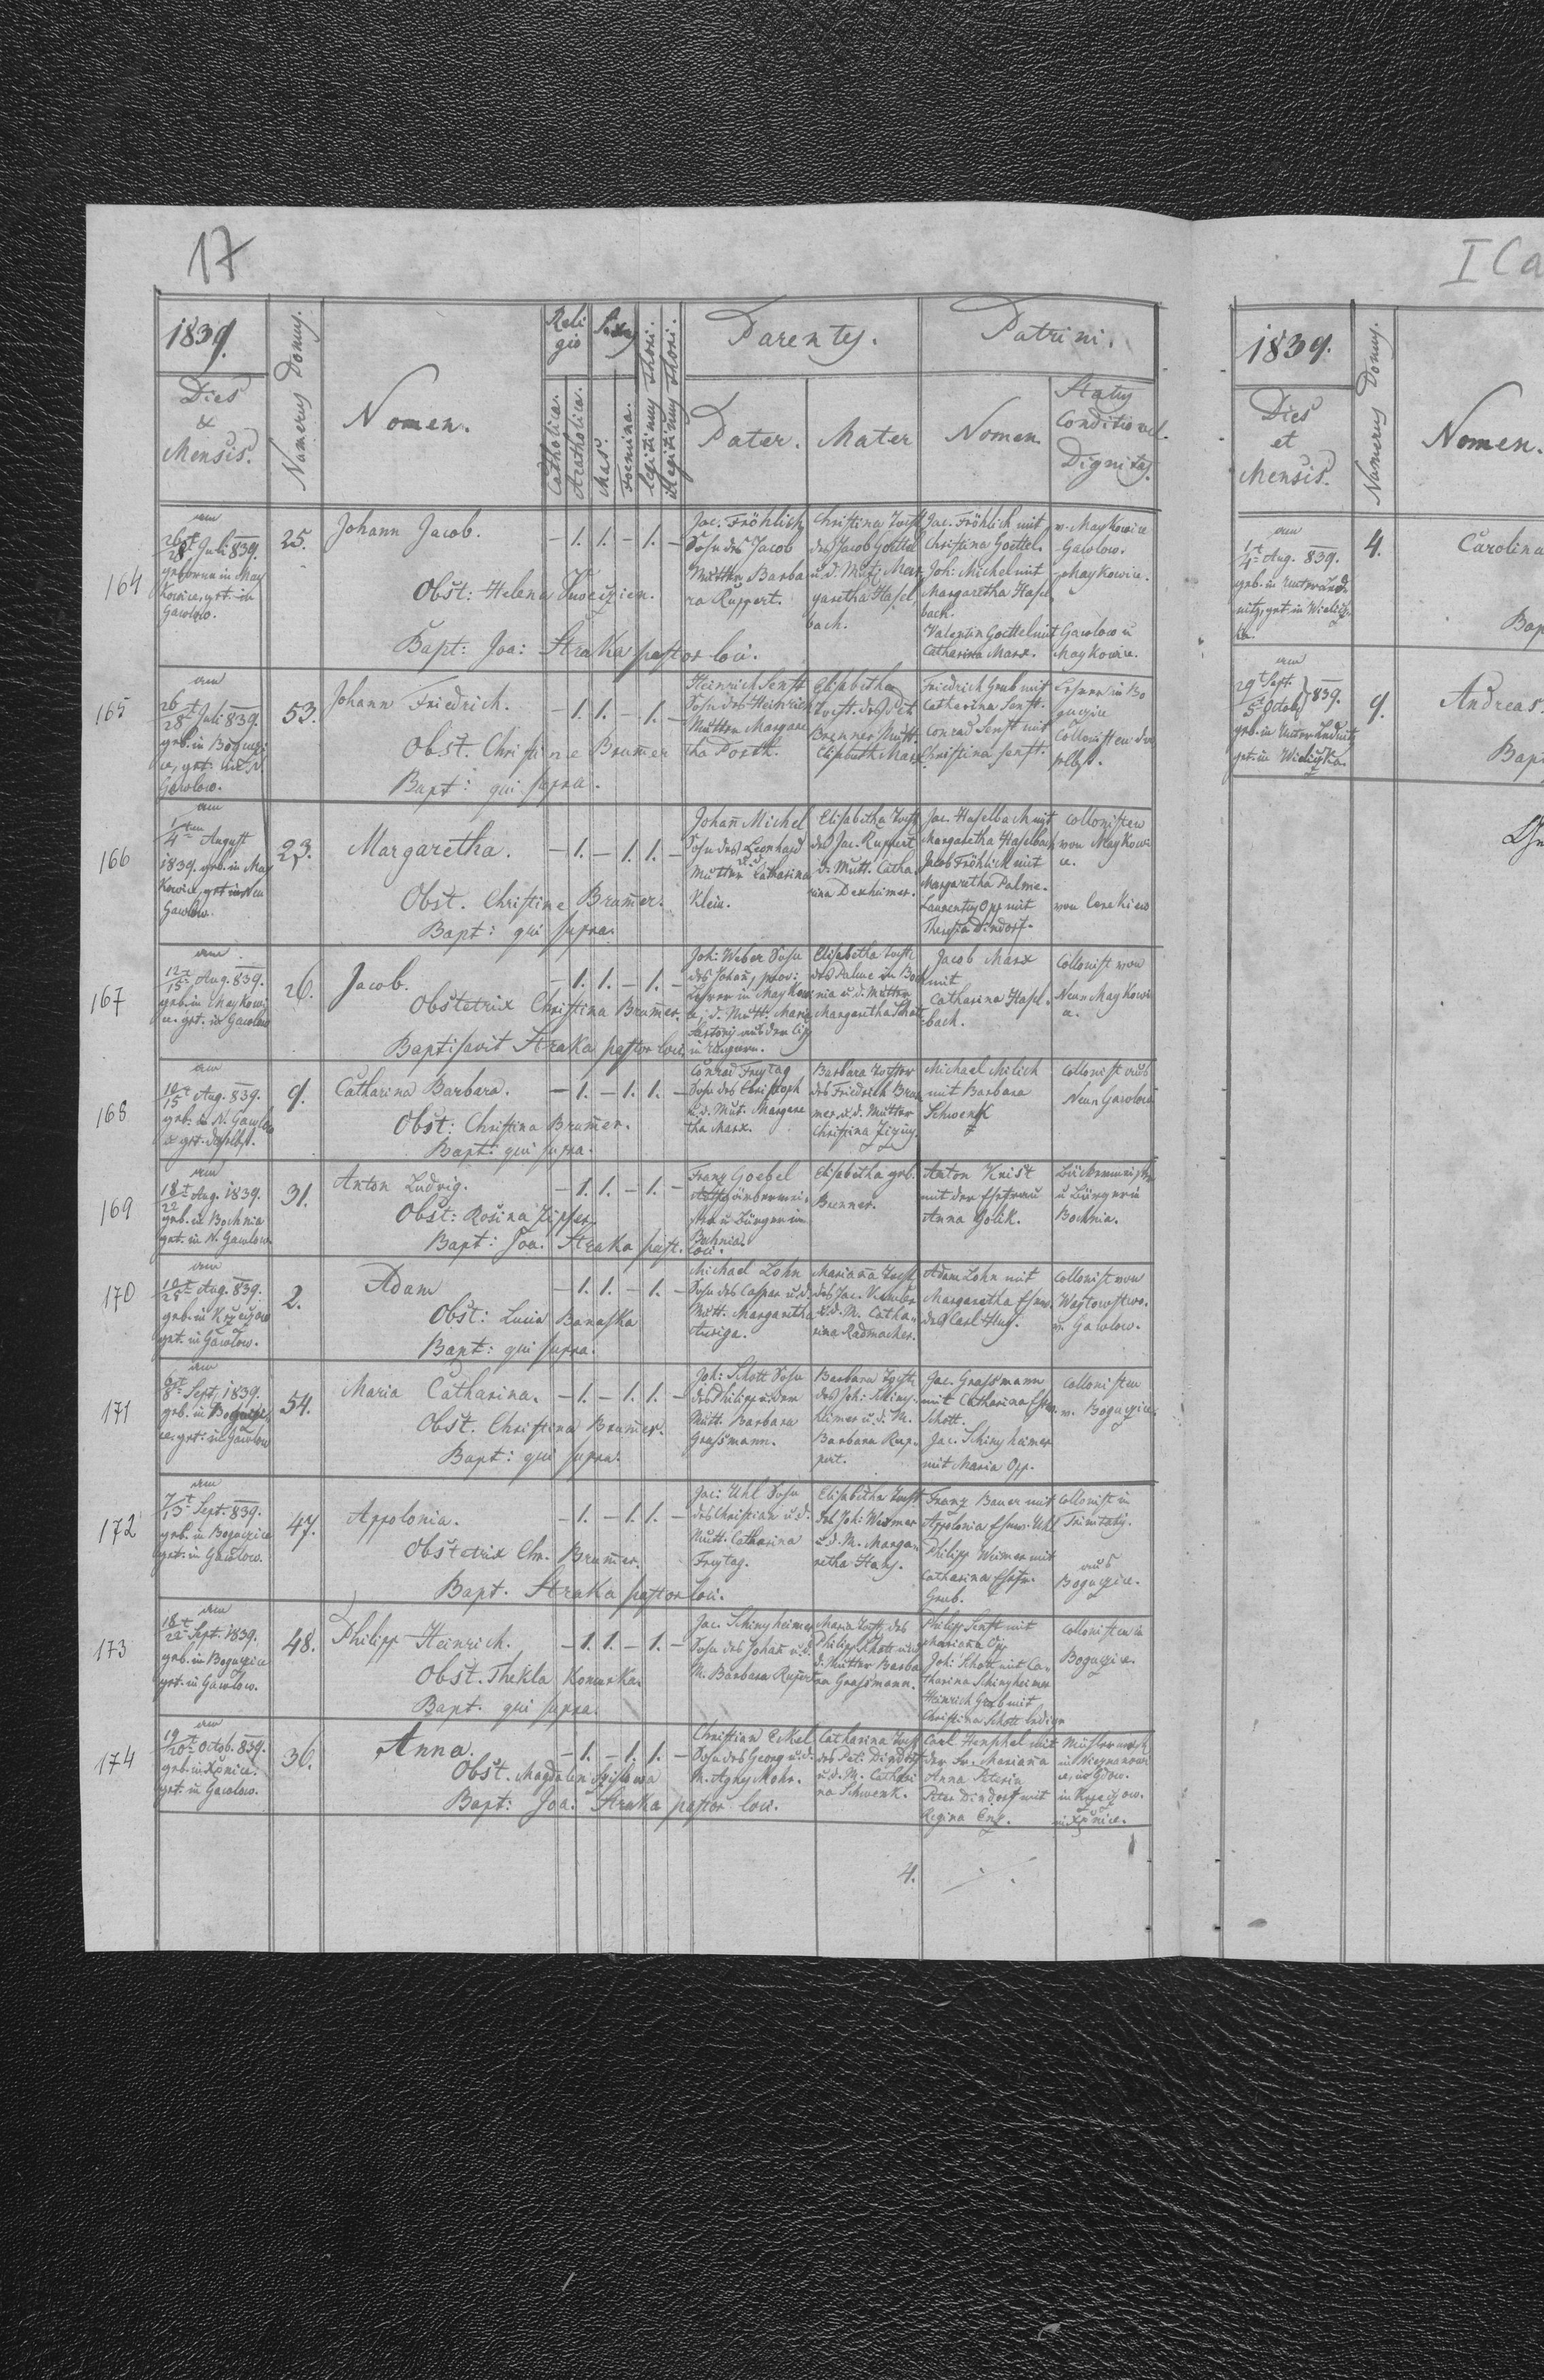 17
I Ca
1839.
Numerus Domus.
Religio
Sexus
Parentes.
Patrini.
Dies
&
Mensis.
Nomen.
Catholica.
Acatholica.
Mas.
Foemina.
legitimus thori.
illegitimus thori.
Pater.
Mater
Nomen.
Status
Conditio vel
Dignitas.
164
am
26/28t Juli 839.
geboren in May
kowice, get. in
Gawlow.
25.
Johann Jacob.
Obst: Helena
Bapt: Joa: Straka pastor loci.
- 1. 1. - 1. -
Jac. Fröhlich
Sohn des Jacob
Mutter Barba
ra Ruppert.
Christina Tocht
des Jacob Goettel
u. d. Mutt. Mar
garetha Hasel
bach.
Jac. Fröhlich mit
Christina Goettel.
Joh: Michel mit
Margaretha Hasel
bach.
Valentin Goettel mit
Catharina Marx.
v. Maykowice
Gawlow.
Maykowice.
Gawlow u
Maykowice.
165
am
26/28t Juli 839.
geb. in Bogucz
ice, get. in N.
Gawlow.
53.
Johann Friedrich.
Obst. Christine Brum̄er
Bapt: qui supra.
- 1. 1. - 1. -
Heinrich Senft
Sohn des Heinrich
Mutter Margare
tha Porth.
Elisabetha
Tocht. des Pet
Brenner Mutt.
Elisabeth Marx
Friedrich Grub mit
Catharina Senft.
Conrad Senft mit
Christina Senft.
Lehrer in Bo
guczice
Collonisten da
selbst.
166
am
1/4ten August
1839. geb. in May
kowice, get in Neu
Gawlow.
23.
Margaretha.
Obst. Christine Brum̄er.
Bapt: qui supra.
- 1. - 1. 1. -
Johan̄ Michel
Sohn des Leonhard
Mutter Catharina
Klein.
Elisabetha Tocht
des Jac. Ruppert
d. Mutt. Catha
rina Dexheimer.
Jac. Haselbach mit
Margaretha Haselbach
Jacob Fröhlich mit
Margaretha Palme.
Laurentz Opp mit
Theresia Dindorf.
Collonisten
von Maykowi
ce.
167
am
12/15t Aug. 839.
geb. in Maykowi
ce. get. in Gawlow
26.
Jacob.
Obstetrix Christina Brum̄er.
Baptisavit Straka pastor loci
- 1. 1. - 1. -
Joh: Weber Sohn
des Johan̄, prov:
Lehrer in Maykow
ice, d. Mutt. Maria
in Ungern.
Elisabetha Tocht
des Palme in Boch
nia u. d. Mutter
Margaretha
Jacob Marx
mit
Catharina Hasel-
bach.
Collonist von
Neu Maykowi
ce.
168
am
10/15t Aug. 839.
geb. in N. Gawlow
get. daselbst.
9.
Catharina Barbara.
Obst: Christina Brum̄er.
Bapt: qui supra.
- 1. - 1. 1. -
Conrad Freytag
Sohn des Christoph
u. d. Mut. Margare
tha Marx.
Barbara Tochter
des Friedrich Bru
mer, u. d. Mutter
Christina
Michael Milich
mit Barbara
Schwenk
Collonist aus
Neu Gawlow
169
am
18/22t Aug. 1839.
geb. in Bochnia
get. in N. Gawlow
31.
Anton Ludvig.
Obst: Rosina Zipser.
Bapt: Joa. Straka past. loci.
- 1. 1. - 1. -
Franz Goebel
ster u Bürger in
Bochnia.
Elisabetha geb.
Brenner.
Anton Krist
mit der Ehefrau
Anna Golik.
u Bürger in
Bochnia.
170
am
10/25t Aug. 839.
geb. in
get. in Gawlow.
2.
Adam
Obst: Lucia Banaska
Bapt: qui supra.
- 1. 1. - 1. -
Michael Lohn
Sohn des Caspar u. d.
Mutt. Margaretha
Auriga.
Marian̄a Tocht
des Jac.
u. d. M. Catha-
rina Radmacher.
Adam Lohn mit
Margaretha Ehew.
des Carl Hug.
Collonist von
Woytowstwo.
v. Gawlow.
171
am
6/8t Sept. 1839.
geb. in Bogucz
ice, get. in Gawlow
54.
Maria Catharina.
Obst. Christina Brum̄er.
Bapt: qui supra.
- 1. - 1. 1. -
Joh: Schott Sohn
des Philipp u. der
Mutt. Barbara
Grassmann.
Barbara Tocht
des Joh: Sching-
heimer u. d. M.
Barbara Rup-
pert.
Jac. Grassmann
mit Catharina Ehew.
Schott.
Jac. Schingheimer
mit Maria Opp.
Collonisten
v. Boguczice.
172
am
7/13t Sept. 839.
geb. in Boguczice
get. in Gawlow.
47.
Appolonia.
Obstetrix Chr. Brum̄er.
Bapt. Straka pastor loci.
- 1. - 1. 1. -
Jac: Uhl Sohn
des Christian u. d.
Mutt. Catharina
Freytag.
Elisabetha Tocht
des Joh: Weimer
u. d. M. Marga-
retha Hary.
Franz Bauer mit
Appolonia Ehew. Uhl
Philipp Weimer mit
Catharina Ehefr.
Grub.
Collonist in
Trinitatis.
aus
Boguczice.
173
am
18/22t Sept. 1839.
geb. in Boguczice
get. in Gawlow.
48.
Philipp Heinrich.
Obst. Thekla Komurka
Bapt. qui supra.
- 1. 1. - 1. -
Jac. Schingheimer
Sohn des Johan̄ u. d.
M. Barbara Rupert
Maria Tocht. des
Philipp Schott u.
d. Mutter Barba
ra Grassmann.
Philipp Senft mit
Marian̄a Opp
Joh: Schott mit Ca-
tharina Schingheimer
Heinrich Grub mit
Christina Schott ledige
Collonisten in
Boguczice.
174
am
19/20t Octob. 839.
geb. in Łonice.
get. in Gawlow.
36.
Anna.
Obst. Magdalena
Bapt: Joa: Straka pastor loci.
- 1. - 1. 1. -
Christian Eckel
Sohn des Georg u. d.
M. Agnes Mohr.
Catharina Tocht
des Pet: Dindorf
u. d. M. Cathari
na Schwenk.
Carl Henschel mit
der Fr. Mariana
Anna
Peter Dindorf mit
Regina
4.
1839.
Dies
et
Mensis.
Numerus Domus.
Nomen.
am
1/4t Aug. 839.
geb. in
get. in Wielicz
ka.
4.
Carolina
Bap
am
29t Sept.
5t Octob. 839.
geb. in
get. in Wieliczka.
9.
Andreas.
Bapt